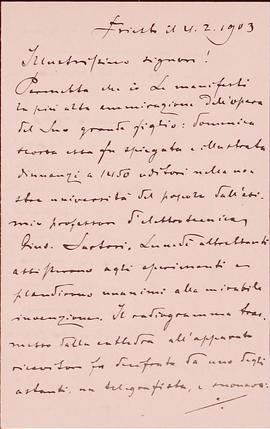 Trieste il 4.2.1903
Illustrissimo signore!
Permetta che io Le manifesti
la più alta ammirazione dell'opera
del Suo grande figlio: domenica
scorsa essa fu spiegata e illustrata
dinnanzi a 1450 uditori nella no-
stra università del popolo dall'esi-
mio professore d'elettrotecnica,
Gius. Sartori. Lunedì altrettanti
assisterono agli esperimenti e
plaudirono unanimi alla mirabile
invenzione. Il radiogramma tras-
messo dalla cattedra all'apparato
ricevitore fu decifrato da uno degli
astanti, un telegrafista, e suonava: